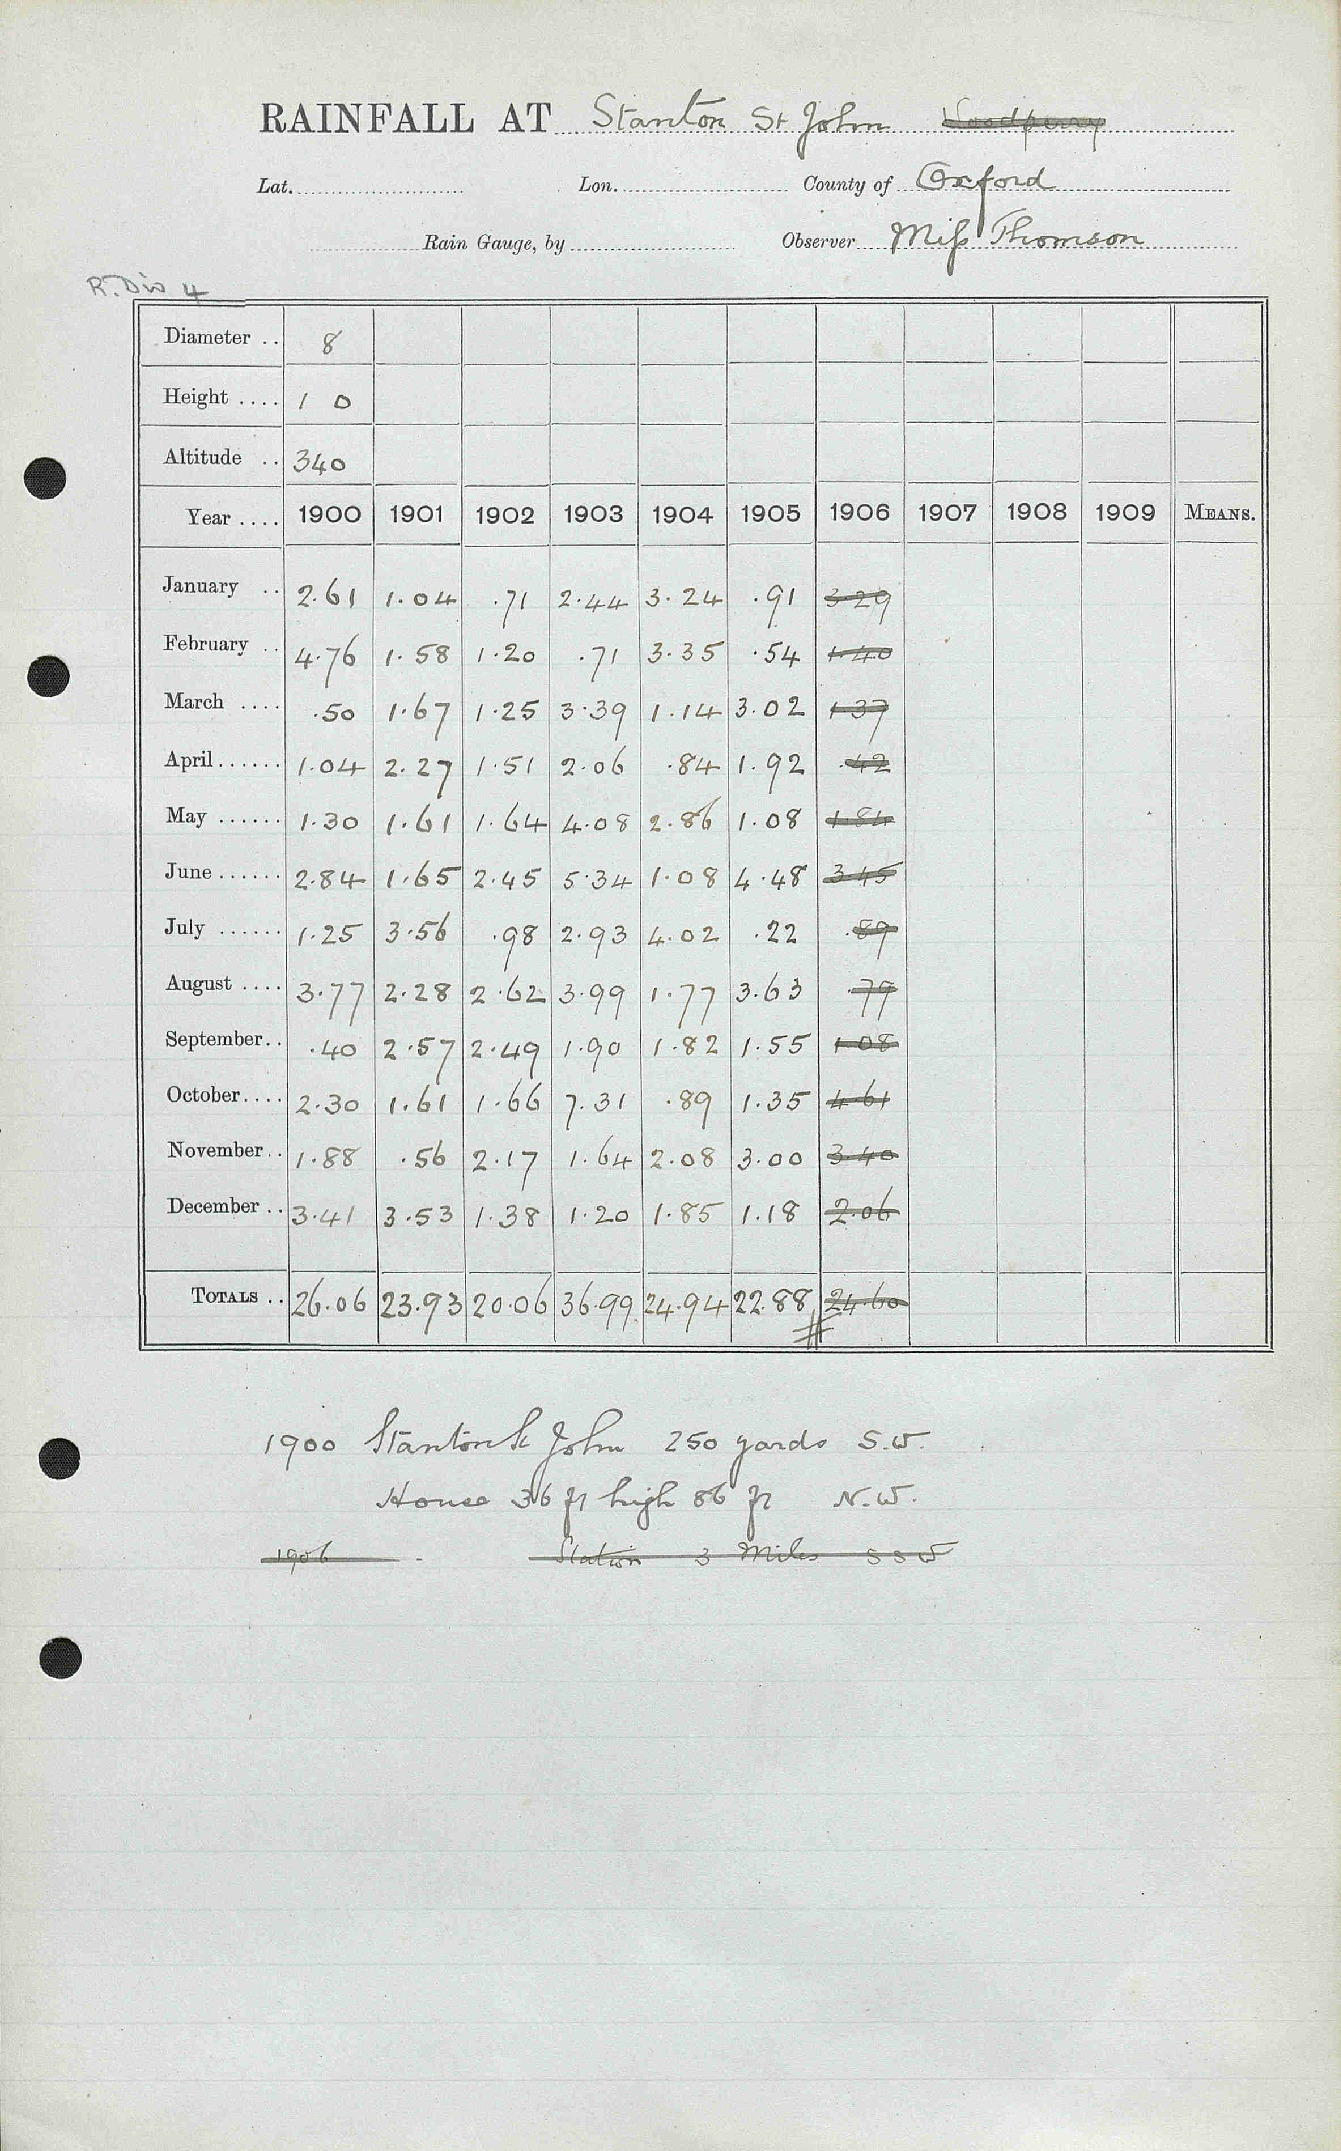 RAINFALL AT Stanton St John Woodperry
Lat. Lon. County of Oxford
Rain Gauge, by Observer Miss Thomson
R. Div 4
Diameter .. 8
Height .... 1 0
Altitude .. 340
Year .... 1900 1901 1902 1903 1904 1905 1906 1907 1908 1909 MEANS.
January .. 2.61 1.04 .71 2.44 3.24 .91 3.29
February .. 4.76 1.58 1.20 .71 3.35 .54 1.40
March .... .50 1.67 1.25 3.39 1.14 3.02 1.37
April ...... 1.04 2.27 1.51 2.06 .84 1.92 .42
May ...... 1.30 1.61 1.64 4.08 2.86 1.08 1.84
June ...... 2.84 1.65 2.45 5.34 1.08 4.48 3.45
July ...... 1.25 3.56 .98 2.93 4.02 .22 .89
August .... 3.77 2.28 2.62 3.99 1.77 3.63 .79
September.. .40 2.57 2.49 1.90 1.82 1.55 1.08
October.... 2.30 1.61 1.66 7.31 .89 1.35 4.61
November.. 1.88 .56 2.17 1.64 2.08 3.00 3.40
December .. 3.41 3.53 1.38 1.20 1.85 1.18 2.06
TOTALS .. 26.06 23.93 20.06 36.99 24.94 22.88 24.60
1900 Stanton St John 250 yards S.W.
House 36 ft high 86 ft N.W.
1906 Station 3 Miles S S W